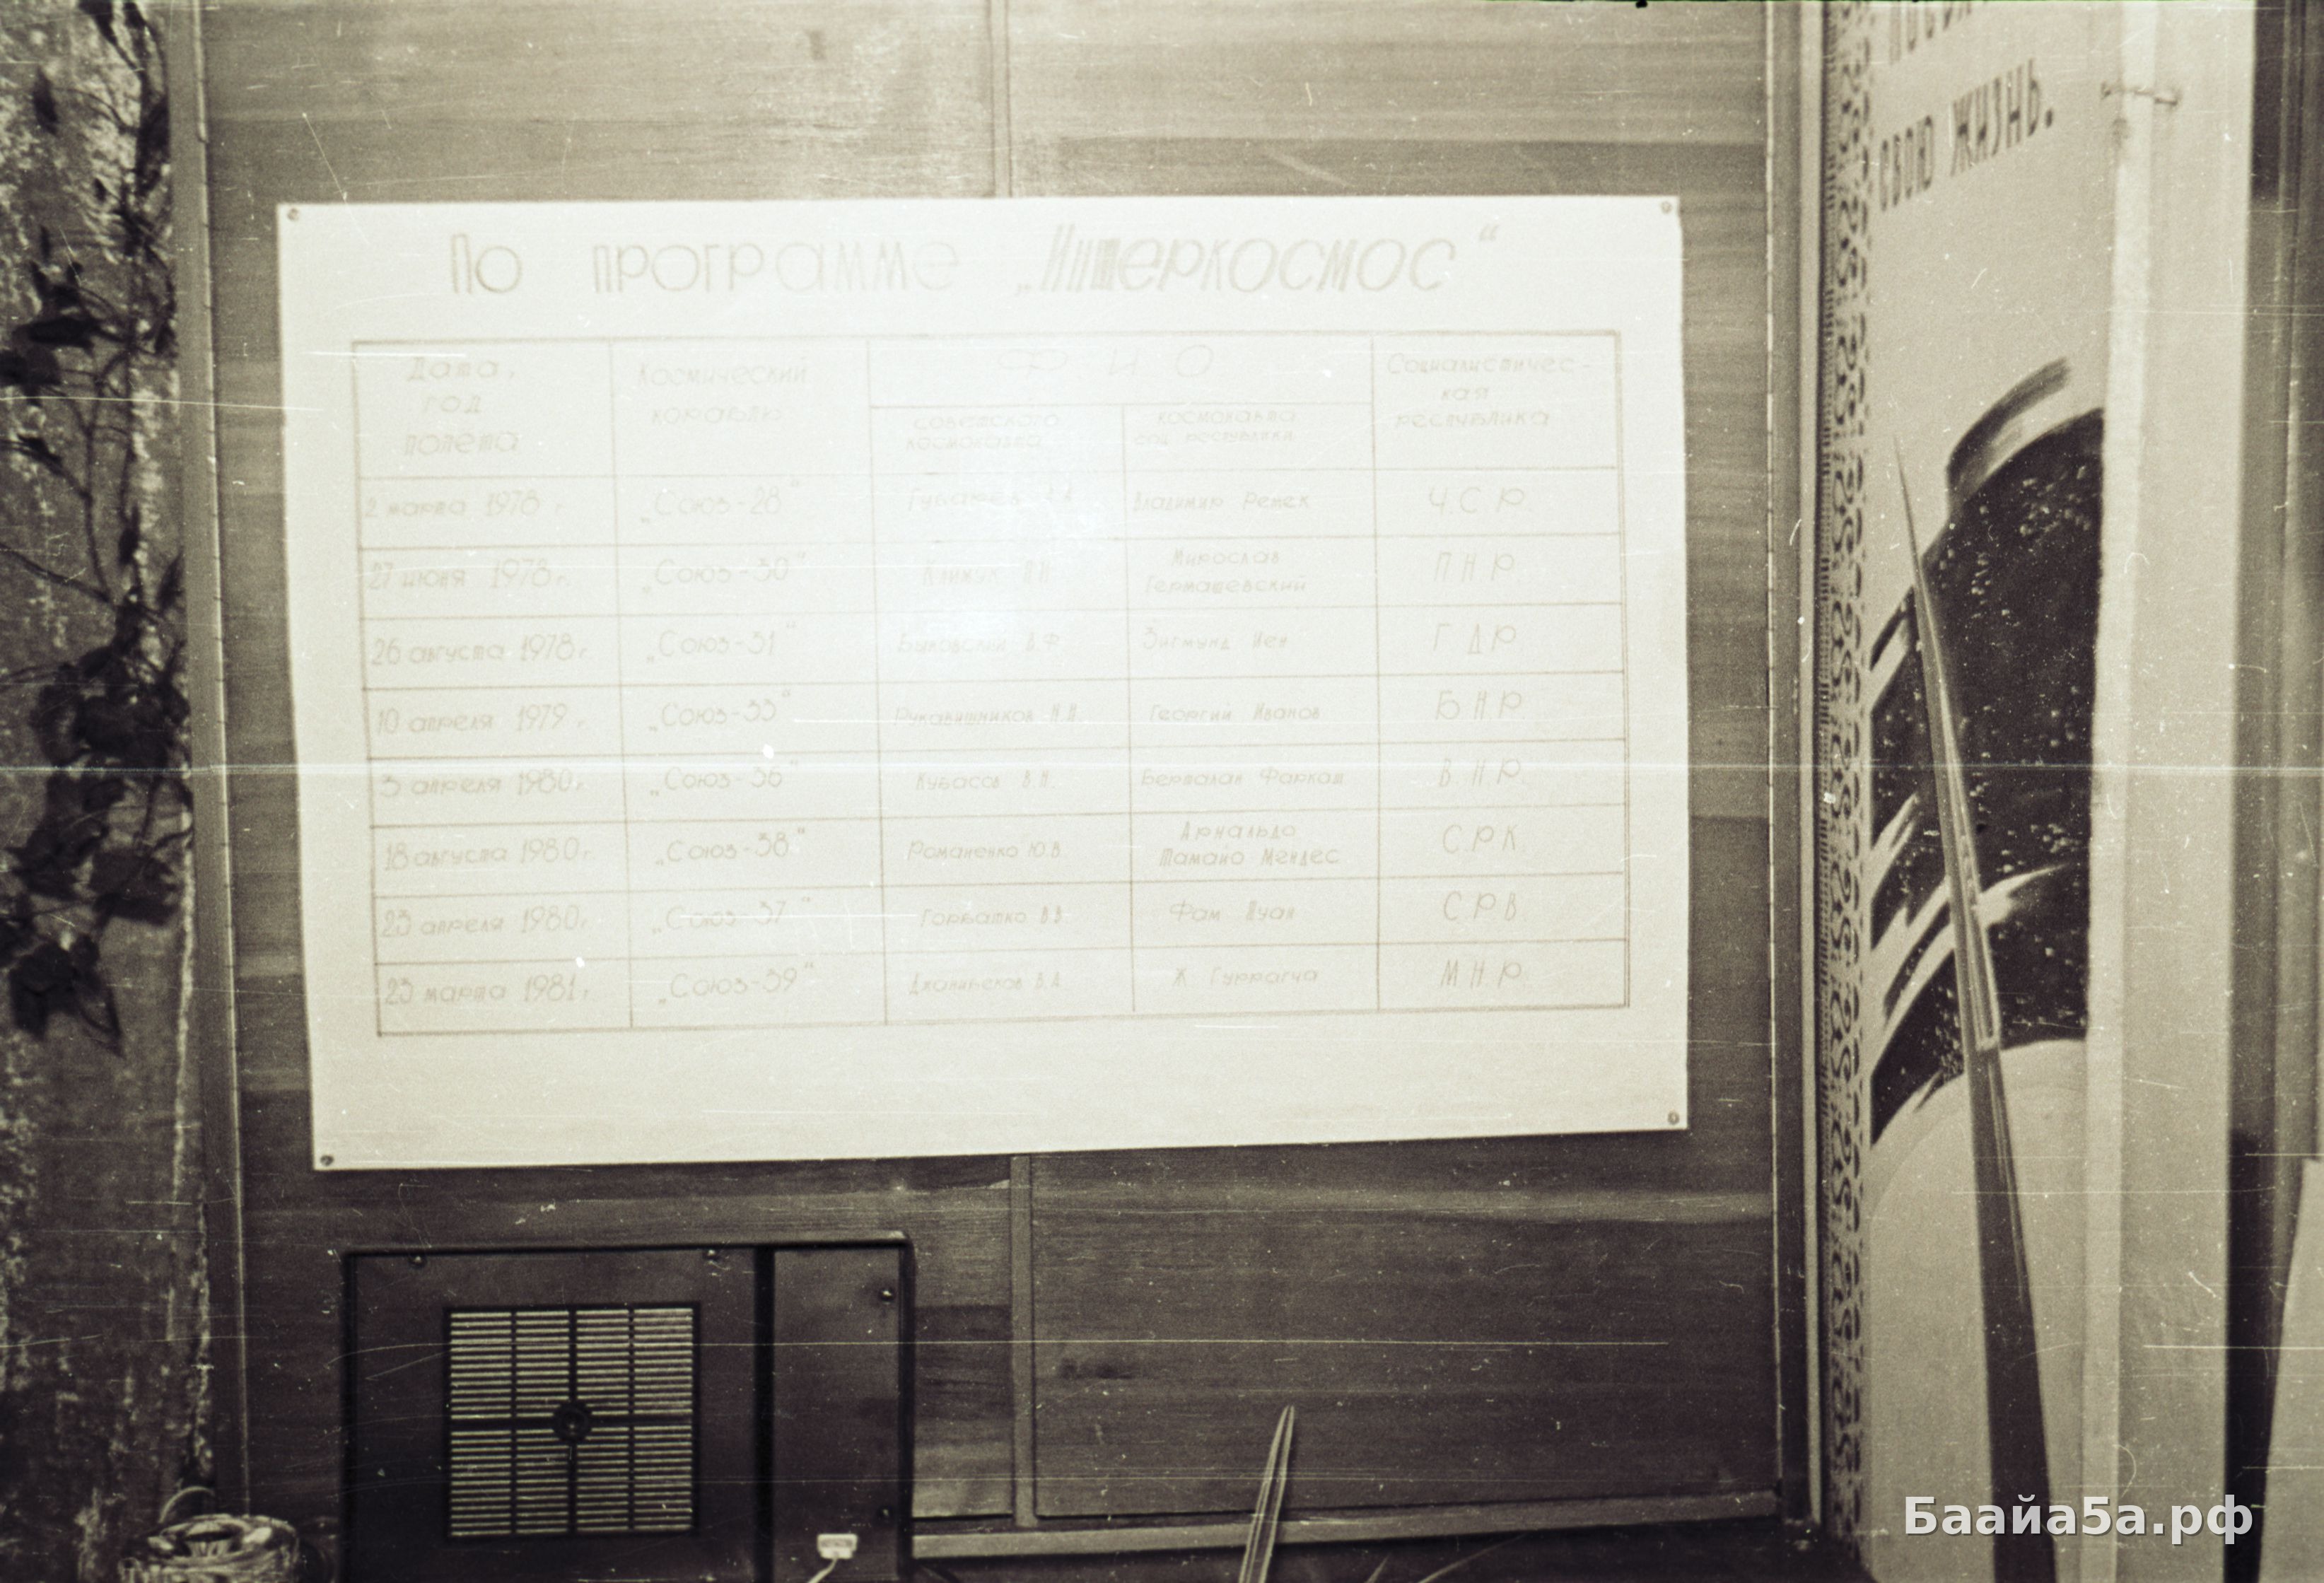 По программе „Интеркосмос“
Дата,
год
полета
Космический
корабль
Ф И О
советского
космонавта
космонавта
соц республики
Социалистичес-
кая
республика
2 марта 1978 г. „Союз-28“ Губарев А.А. Владимир Ремек Ч.С.Р.
27 июня 1978 г. „Союз-30“ Климук П.И. Мирослав Гермашевский П.Н.Р.
26 августа 1978 г. „Союз-31“ Быковский В.Ф. Зигмунд Иен Г.Д.Р.
10 апреля 1979 г. „Союз-33“ Рукавишников Н.Н. Георгий Иванов Б.Н.Р.
3 апреля 1980 г. „Союз-36“ Кубасов В.Н. Берталан Фаркаш В.Н.Р.
18 августа 1980 г. „Союз-38“ Романенко Ю.В. Арнальдо Тамайо Мендес С.Р.К.
23 апреля 1980 г. „Союз-37“ Горбатко В.В. Фам Туан С Р В
23 марта 1981 г. „Союз-39“ Джанибеков В.А. Ж Гуррагча М.Н.Р.
свою жизнь.
Баайа5а.рф